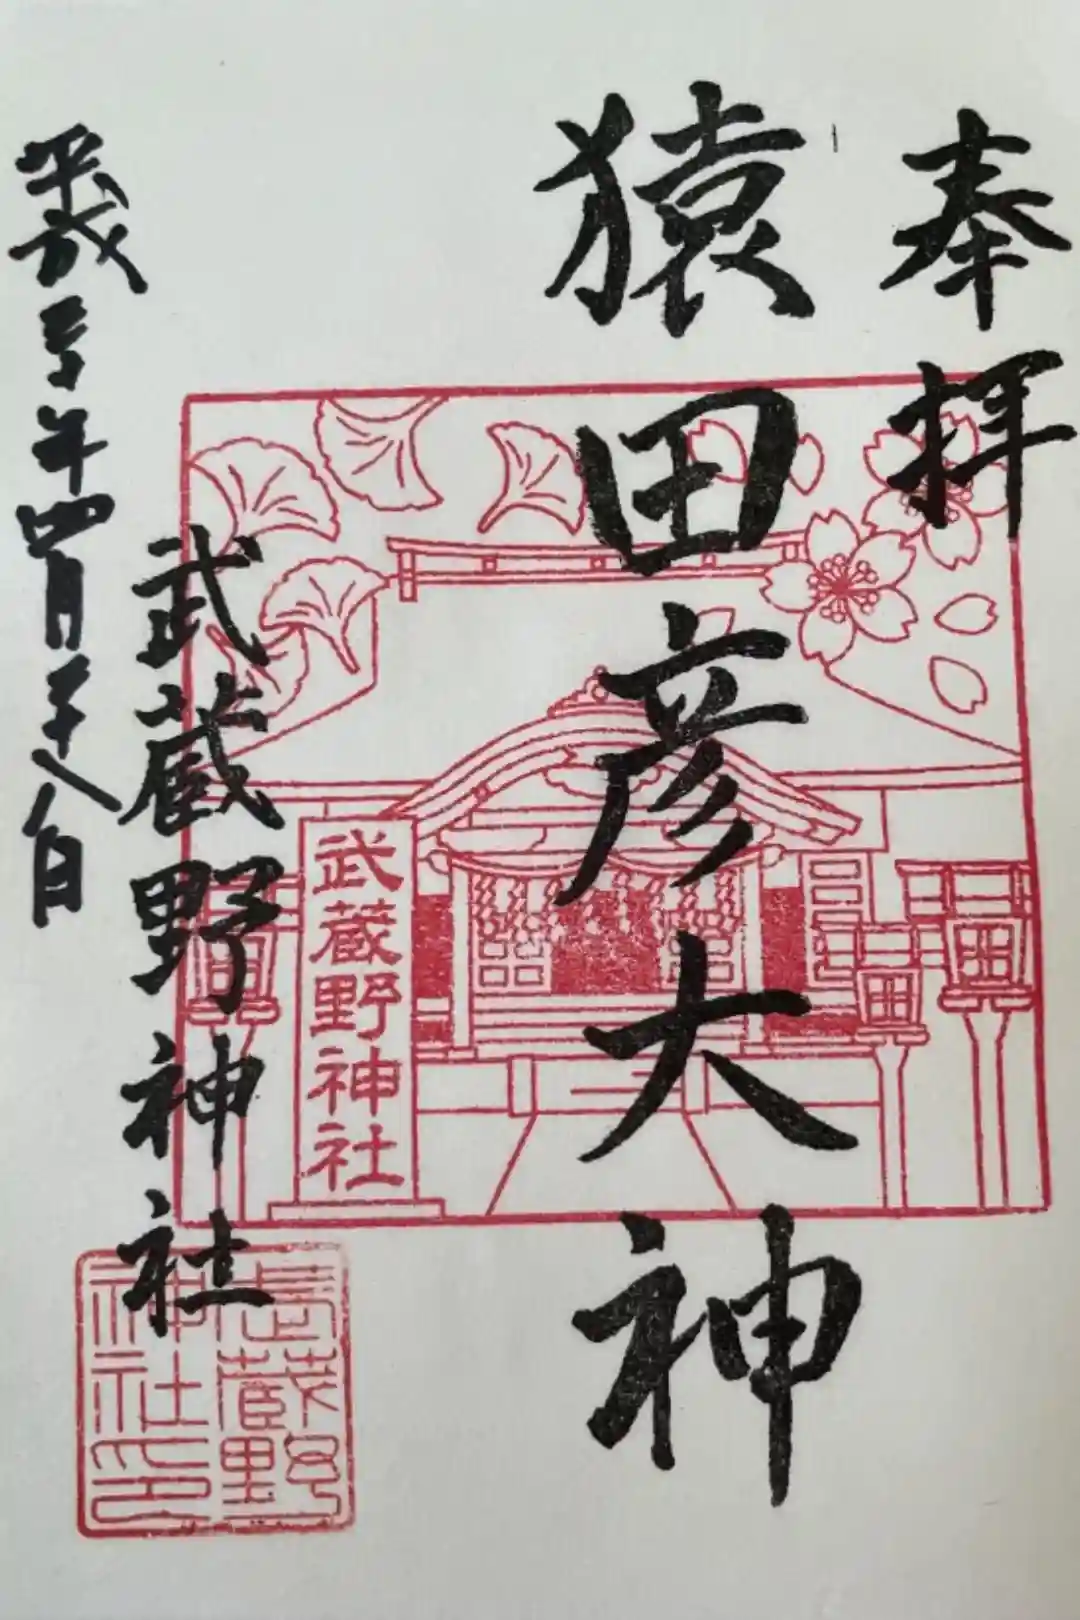 奉拝
猿田彦大神
武蔵野神社
武蔵野神社
平成三十年四月二十八日
武蔵野
神社印